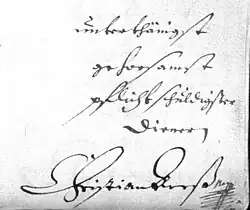 unterthänigst
gehorsamst
pflicht schuldigster
Diener
Christian